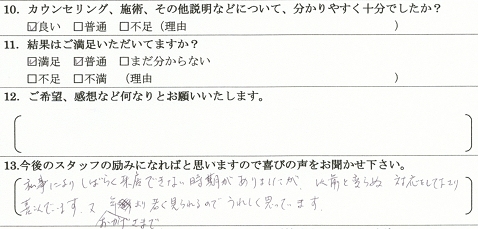 10. カウンセリング、施術、その他説明などについて、分かりやすく十分でしたか？
☑良い □普通 □不足（理由　　　）
11. 結果はご満足いただいてますか？
☑満足 ☑普通 □まだ分からない
□不足 □不満 （理由　　　）
12. ご希望、感想など何なりとお願いいたします。
13.今後のスタッフの励みになればと思いますので喜びの声をお聞かせ下さい。
私事によりしばらく来店できない時期がありましたが、以前と変らぬ対応をして下さり
喜んでいます。又 年より若く見られるのでうれしく思っています。
おかげさまで